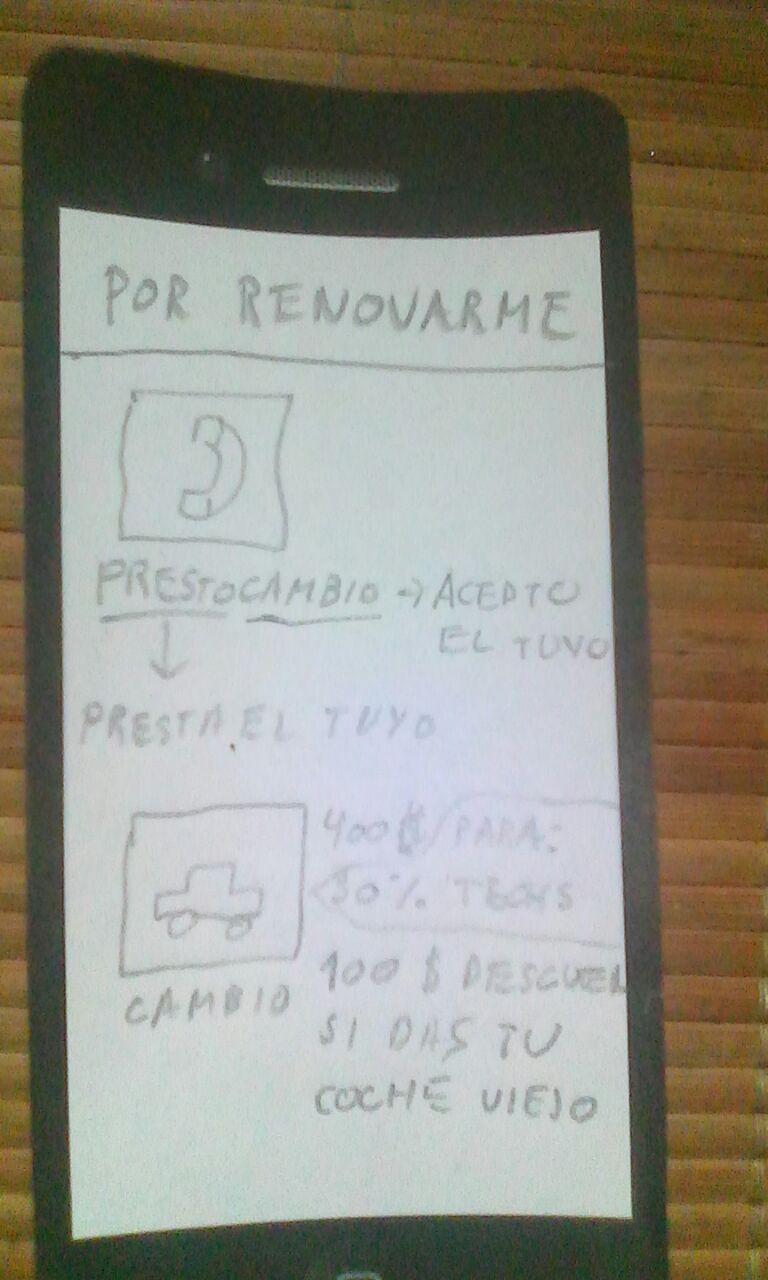 POR RENOVARME
PRESTOCAMBIO → ACEPTO
EL TUYO
PRESTA EL TUYO
400 $ PARA:
50% TECHS
100 $ DESCUEN
SI DAS TU
COCHE VIEJO
CAMBIO